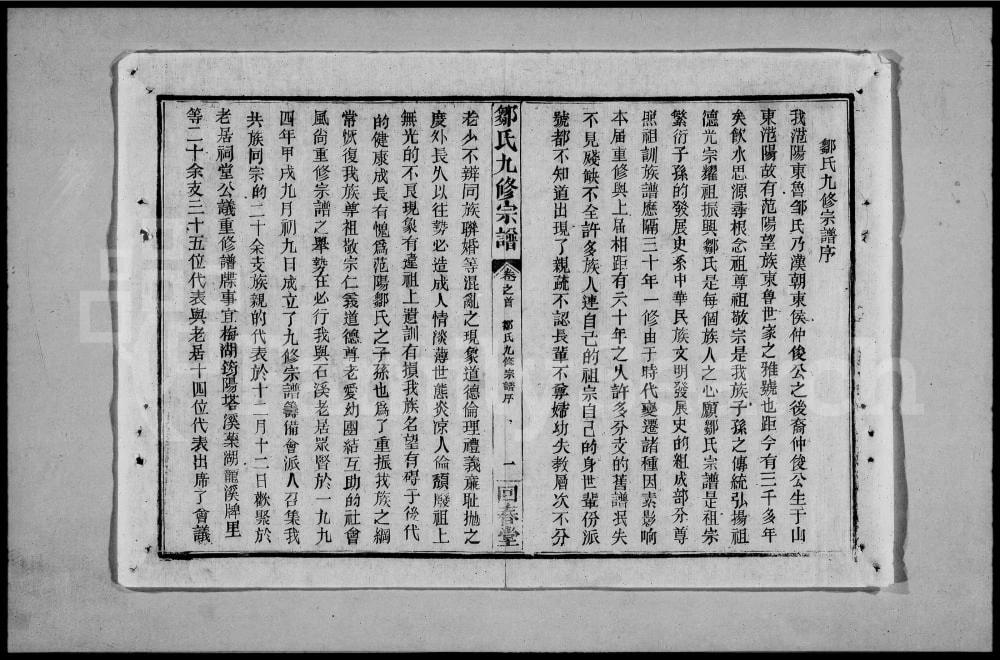 鄒氏九修宗譜序
我范陽東魯邹氏乃漢朝東侯仲俊公之後裔仲俊公生于山
東范陽故有范陽望族東魯世家之雅號也距今有三千多年
矣飲水思源尋根念祖尊祖敬宗是我族子孫之傳統弘揚祖
德光宗耀祖振興鄒氏是每個族人之心願鄒氏宗譜是祖宗
繁衍子孫的發展史系中華民族文明發展史的組成部分尊
照祖訓族譜應隔三十年一修由于時代變遷諸種因素影响
本届重修與上届相距有六十年之久許多分支的舊譜民失
不見殘缺不全許多族人連自己的祖宗自己的身世輩份派
號都不知道出現了親疏不認長輩不尊婦幼失教層次不分
鄒氏九修宗譜
卷之首
鄒氏九修宗譜序
一
回春堂
老少不辨同族聯婚等混亂之現象道德倫理禮義亷耻抛之
度外長久以往势必造成人情淡薄世態炎凉人倫頹廢祖上
無光的不良現象有違祖上遺訓有損我族名望有碍于後代
的健康成長有愧爲范陽鄒氏之子孫也爲了重振我族之綱
常恢复我族尊祖敬宗仁義道德尊老愛幼團結互助的社會
風尚重修宗譜之舉势在必行我與石溪老居眾賢於一九九
四年甲戌九月初九日成立了九修宗譜籌備會派人召集我
共族同宗的二十余支族親的代表於十二月十二日歡聚於
老居祠堂公議重修譜牒事宜梅湖筠陽塔溪葉湖龍溪牌里
等二十余支三十五位代表與老居十四位代表出席了會議